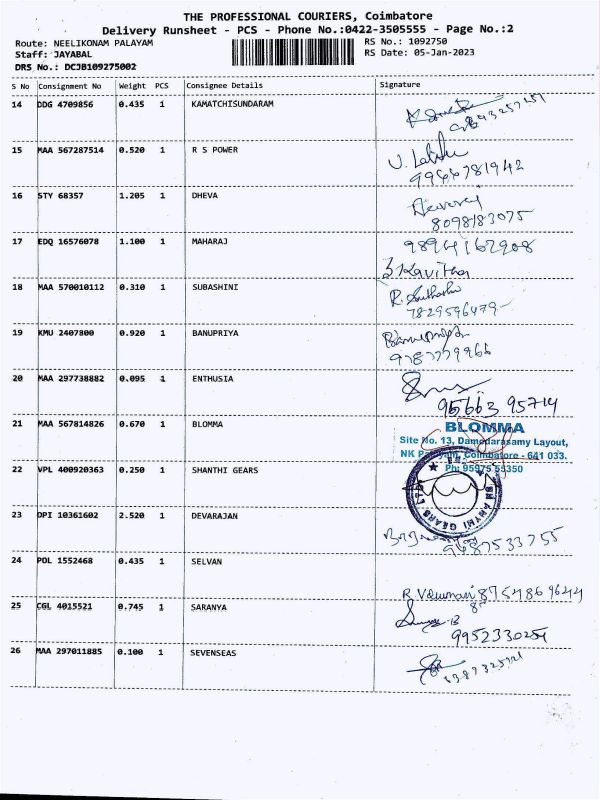 THE PROFESSIONAL COURIERS, Coimbatore
Delivery Runsheet - PCS - Phone No.:0422-3505555 - Page No.:2
Route: NEELIKONAM PALAYAM
RS No.: 1092750
Staff: JAYABAL
RS Date: 05-Jan-2023
DRS No.: DCJB109275002
S No Consignment No Weight PCS Consignee Details Signature
14 DDG 4709856 0.435 1 KAMATCHISUNDARAM
15 MAA 567287514 0.520 1 R S POWER
9966781942
16 STY 68357 1.205 1 DHEVA
8098183075
17 EDQ 16576078 1.100 1 MAHARAJ
9894162908
S Kavitha
18 MAA 570010112 0.310 1 SUBASHINI
7829596479
19 KMU 2407800 0.920 1 BANUPRIYA
Banupriya
9787779966
20 MAA 297738882 0.095 1 ENTHUSIA
95663 95714
21 MAA 567814826 0.670 1 BLOMMA
BLOMMA
Site No. 13, Damodarasamy Layout,
NK Coimbatore - 641 033.
Ph: 95975 55350
22 VPL 400920363 0.250 1 SHANTHI GEARS
SHANTHI GEARS LTD
23 DPI 10361602 2.520 1 DEVARAJAN
9687533755
24 PDL 1552468 0.435 1 SELVAN
8754869644
25 CGL 4015521 0.745 1 SARANYA
9952330254
26 MAA 297011885 0.100 1 SEVENSEAS